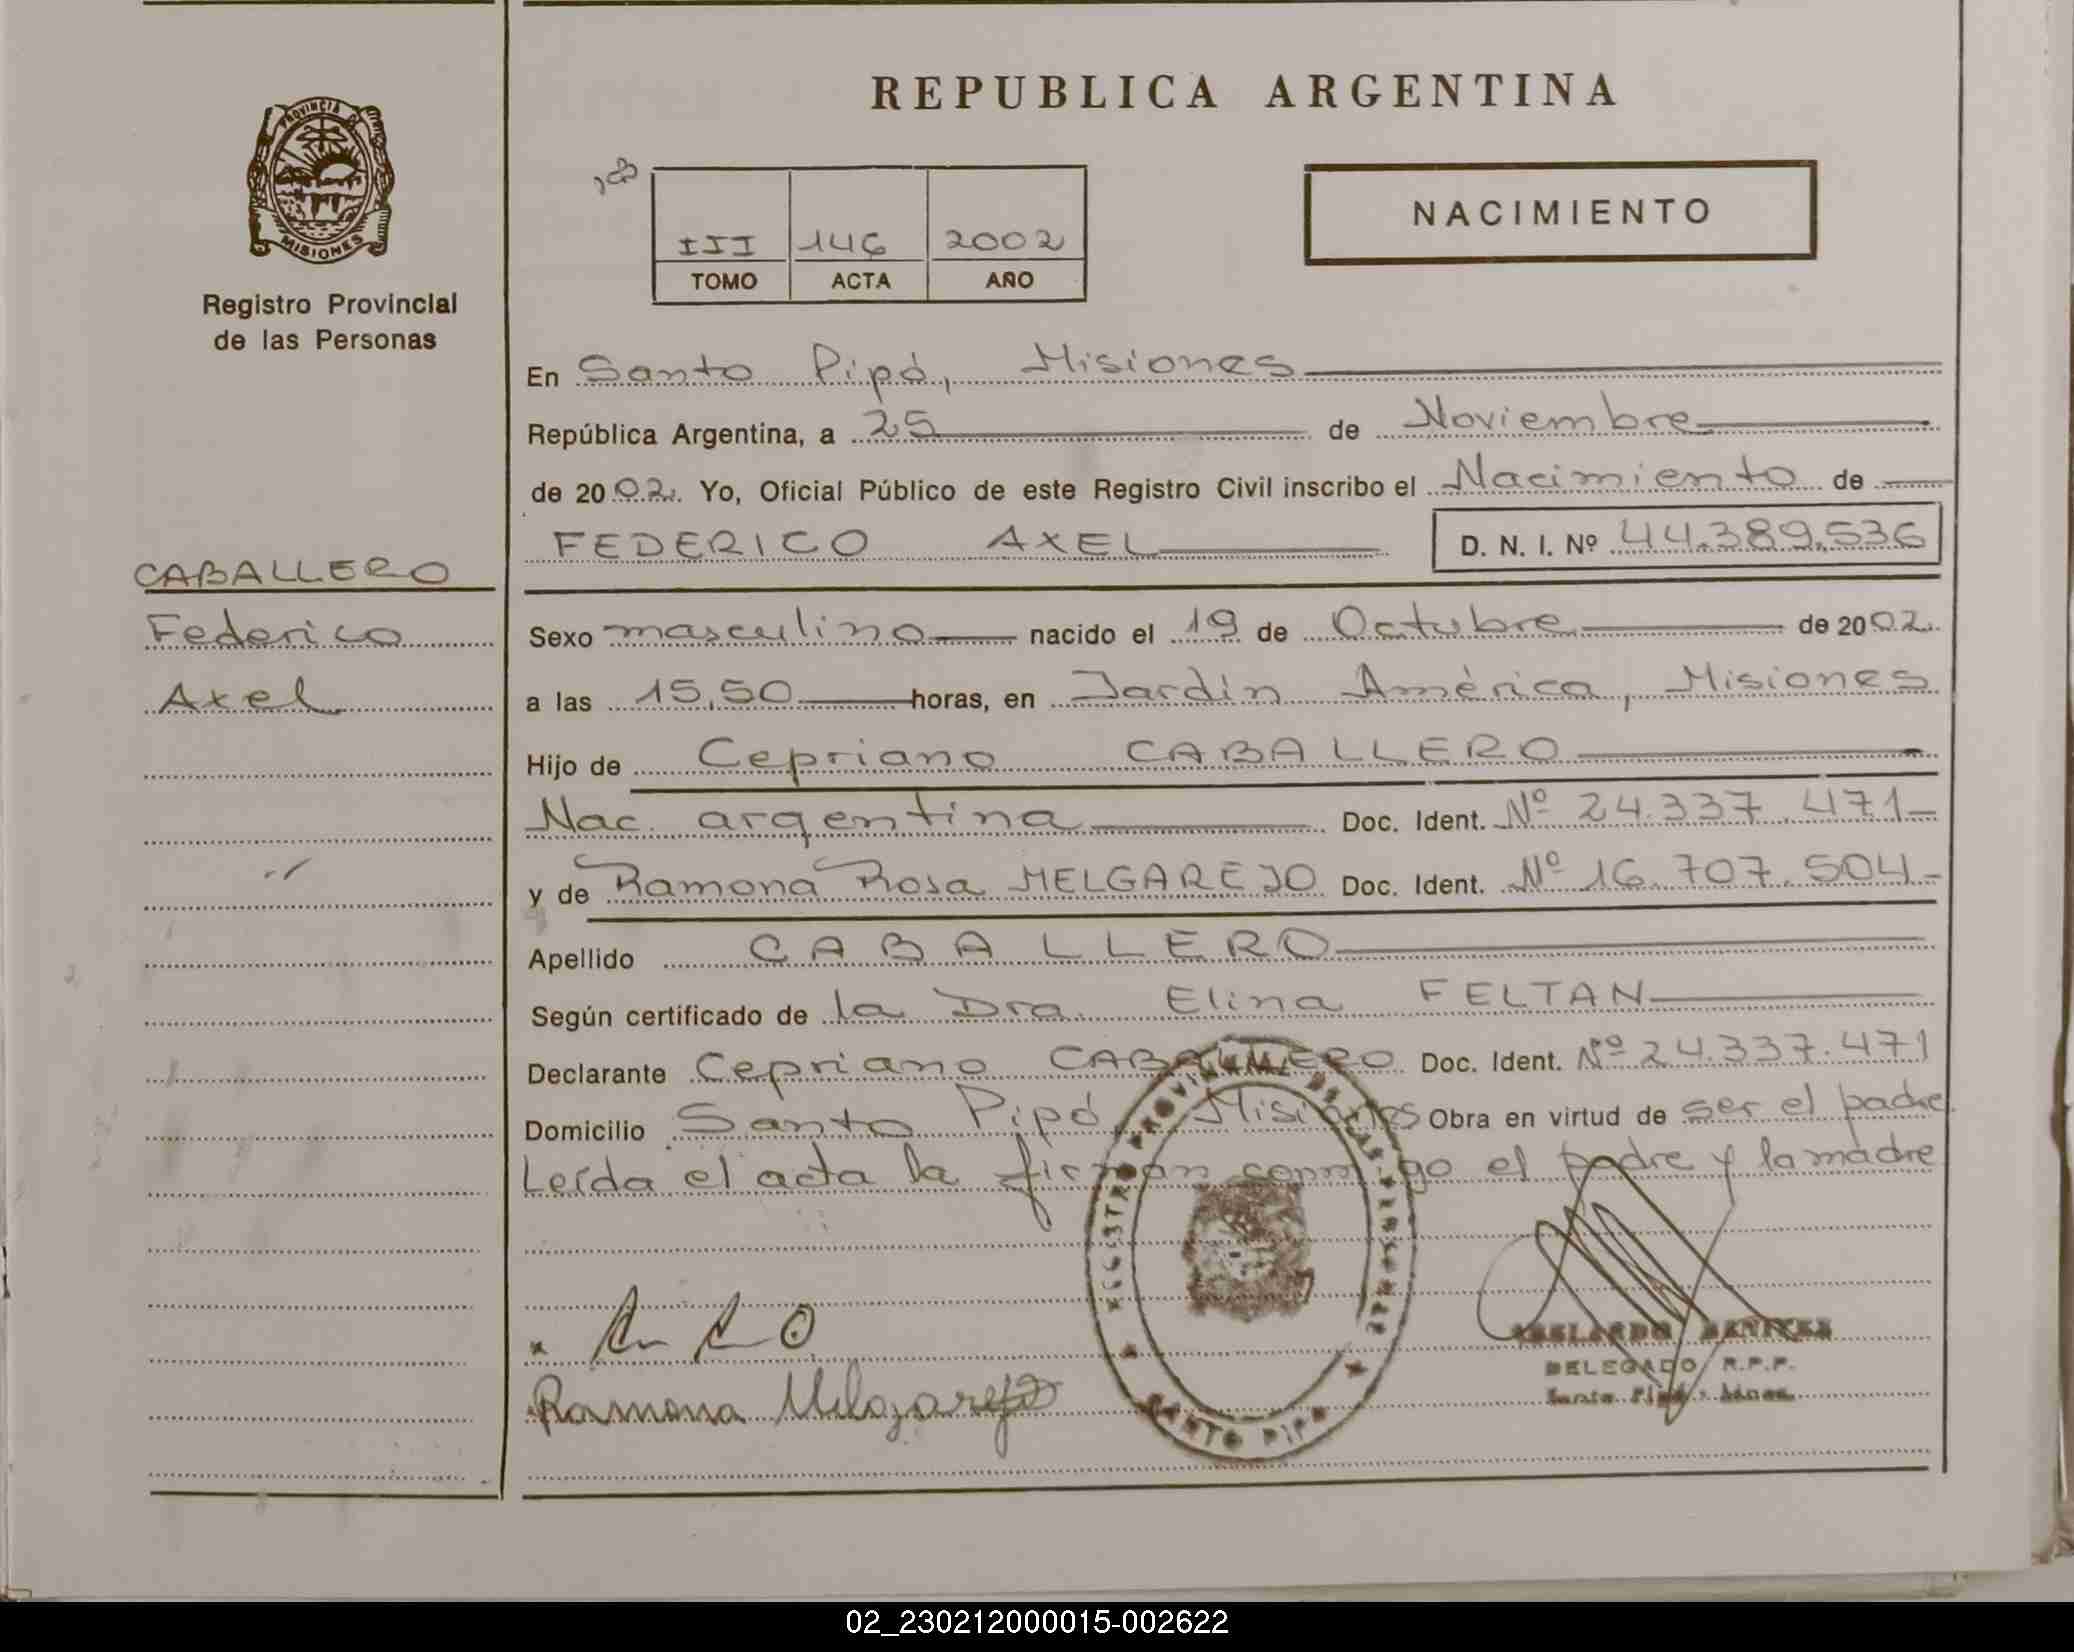 REPUBLICA ARGENTINA
PROVINCIA DE
MISIONES
Registro Provincial
de las Personas
NACIMIENTO
III 146 2002
TOMO ACTA AÑO
En Santo Pipó, Misiones
República Argentina, a 25 de Noviembre
de 2002. Yo, Oficial Público de este Registro Civil inscribo el Nacimiento de
FEDERICO AXEL D. N. I. Nº 44.389.536
CABALLERO
Federico
Axel
Sexo masculino nacido el 19 de Octubre de 2002.
a las 15,50 horas, en Jardín América, Misiones
Hijo de Cepriano CABALLERO
Nac. argentina Doc. Ident. Nº 24.337.471
y de Ramona Rosa MELGAREJO Doc. Ident. Nº 16.707.504
Apellido CABALLERO
Según certificado de la Dra. Elina FELTAN
Declarante Cepriano CABALLERO Doc. Ident. Nº 24.337.471
Domicilio Santo Pipó, Misiones Obra en virtud de ser el padre
Leída el acta la firman conmigo el padre y la madre
REGISTRO PROVINCIAL DE LAS PERSONAS
SANTO PIPO
Ramona Melgarejo
ABELARDO BENITEZ
DELEGADO R.P.P.
Santo Pipó - Mnes.
02_230212000015-002622